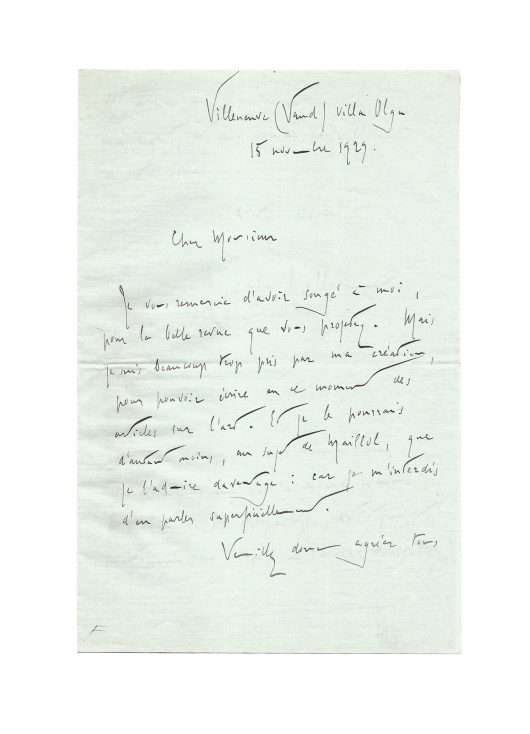 Villeneuve (Vaud) villa Olga
15 novembre 1929.
Cher Monsieur
Je vous remercie d'avoir songé à moi,
pour la belle revue que vous projetez. Mais
je suis beaucoup trop pris par ma création,
pour pouvoir écrire en ce moment des
articles sur l'art. Et je le pourrais
d'autant moins, au sujet de Maillol, que
je l'admire davantage : car je m'interdis
d'en parler superficiellement.
Veuillez donc agréer tous